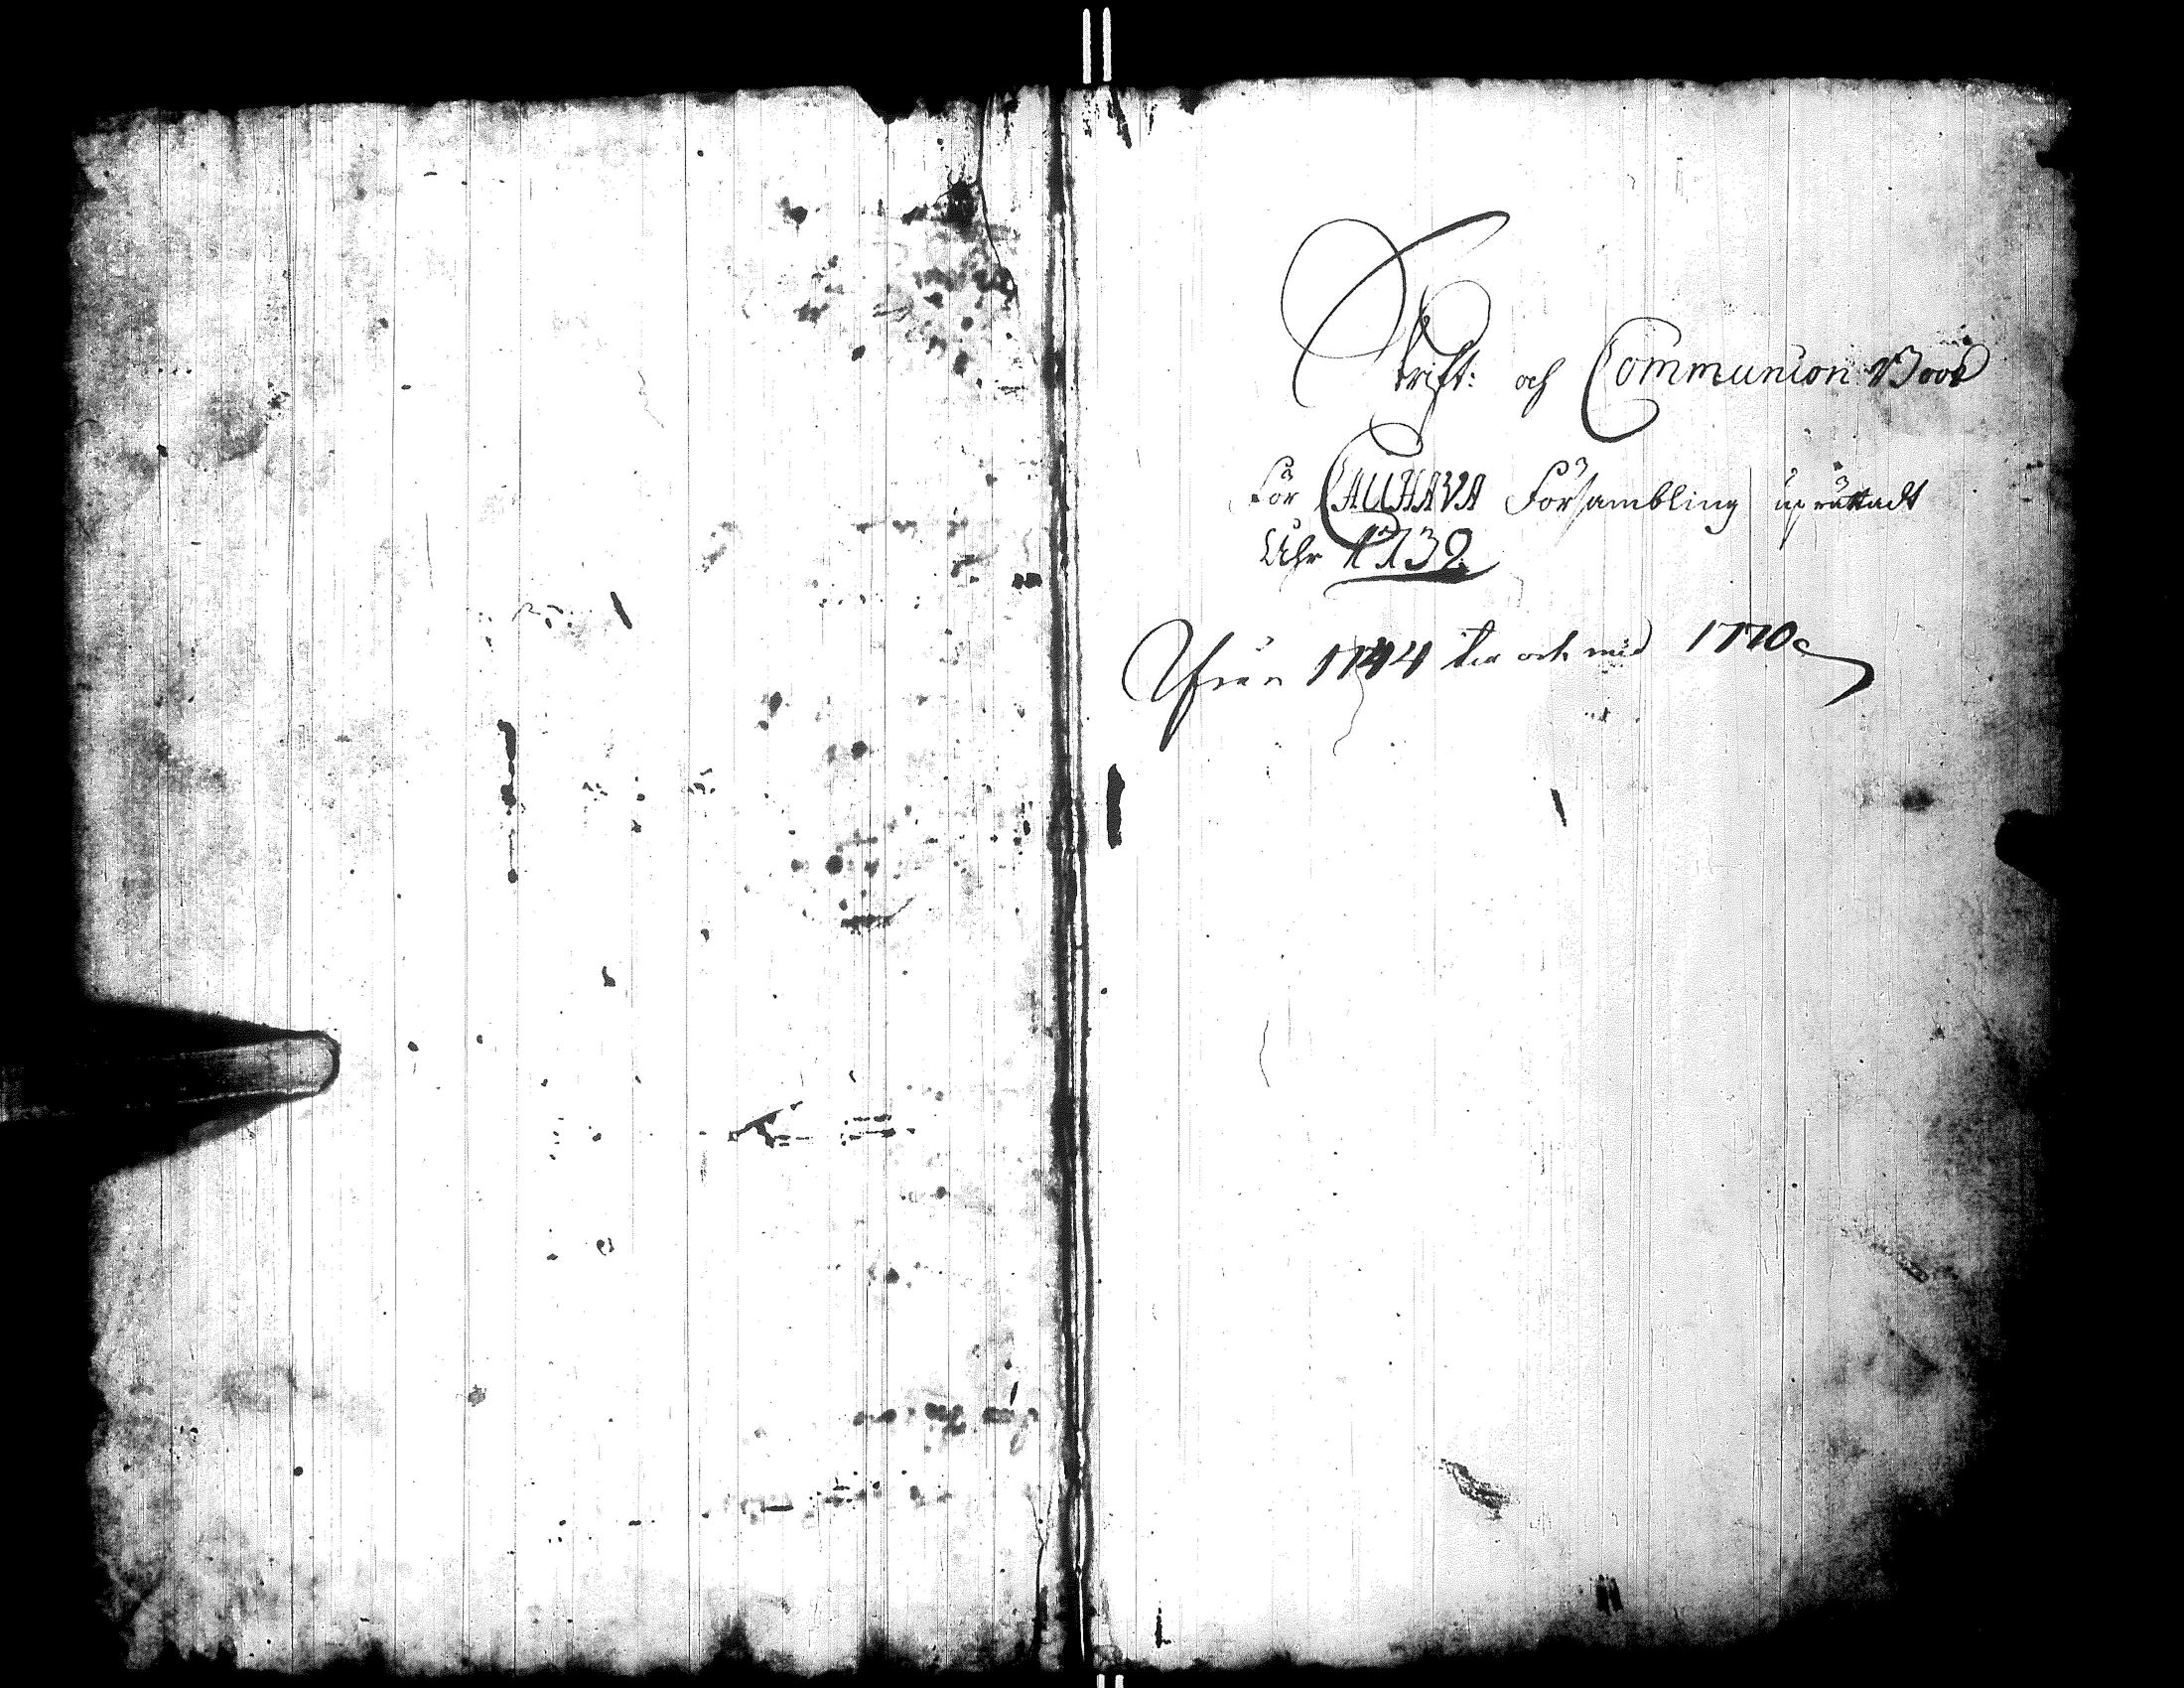 Skrift: och Communion Book
För CAUHAVA Försambling uprättadt
Åhr 1739.
Ifrån 1744 till och med 1770